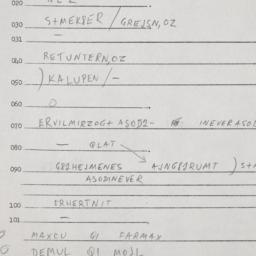 020
030 S+MEKBER / GREJSN,OZ
031 —
040 RETUNTERN,OZ
050 ) KALUPEN /—
060 O
070 ERVILMIRZOG+ ASODI- INEVERASO
080 — QLAT
090 G81HEJMENES AJNGE1RUMT ) S+
ASODINEVER
100 ERHERTNIT
101 —
MAXCU QI FARMAX
DEMUL QI MOJL